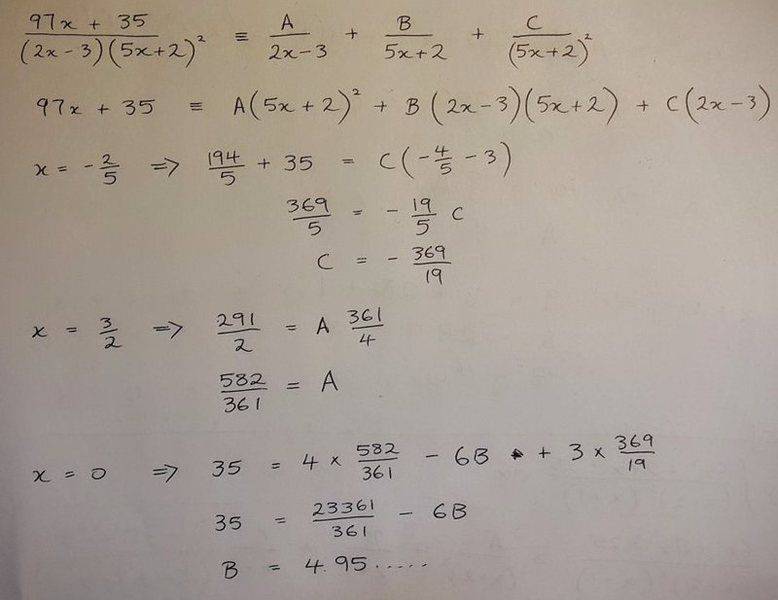 (97x + 35)/((2x-3)(5x+2)²) ≡ A/(2x-3) + B/(5x+2) + C/(5x+2)²
97x + 35 ≡ A(5x+2)² + B(2x-3)(5x+2) + C(2x-3)
x = -2/5 => 194/5 + 35 = C(-4/5 - 3)
369/5 = -19/5 C
C = -369/19
x = 3/2 => 291/2 = A 361/4
582/361 = A
x = 0 => 35 = 4 × 582/361 - 6B + 3 × 369/19
35 = 23361/361 - 6B
B = 4.95.....